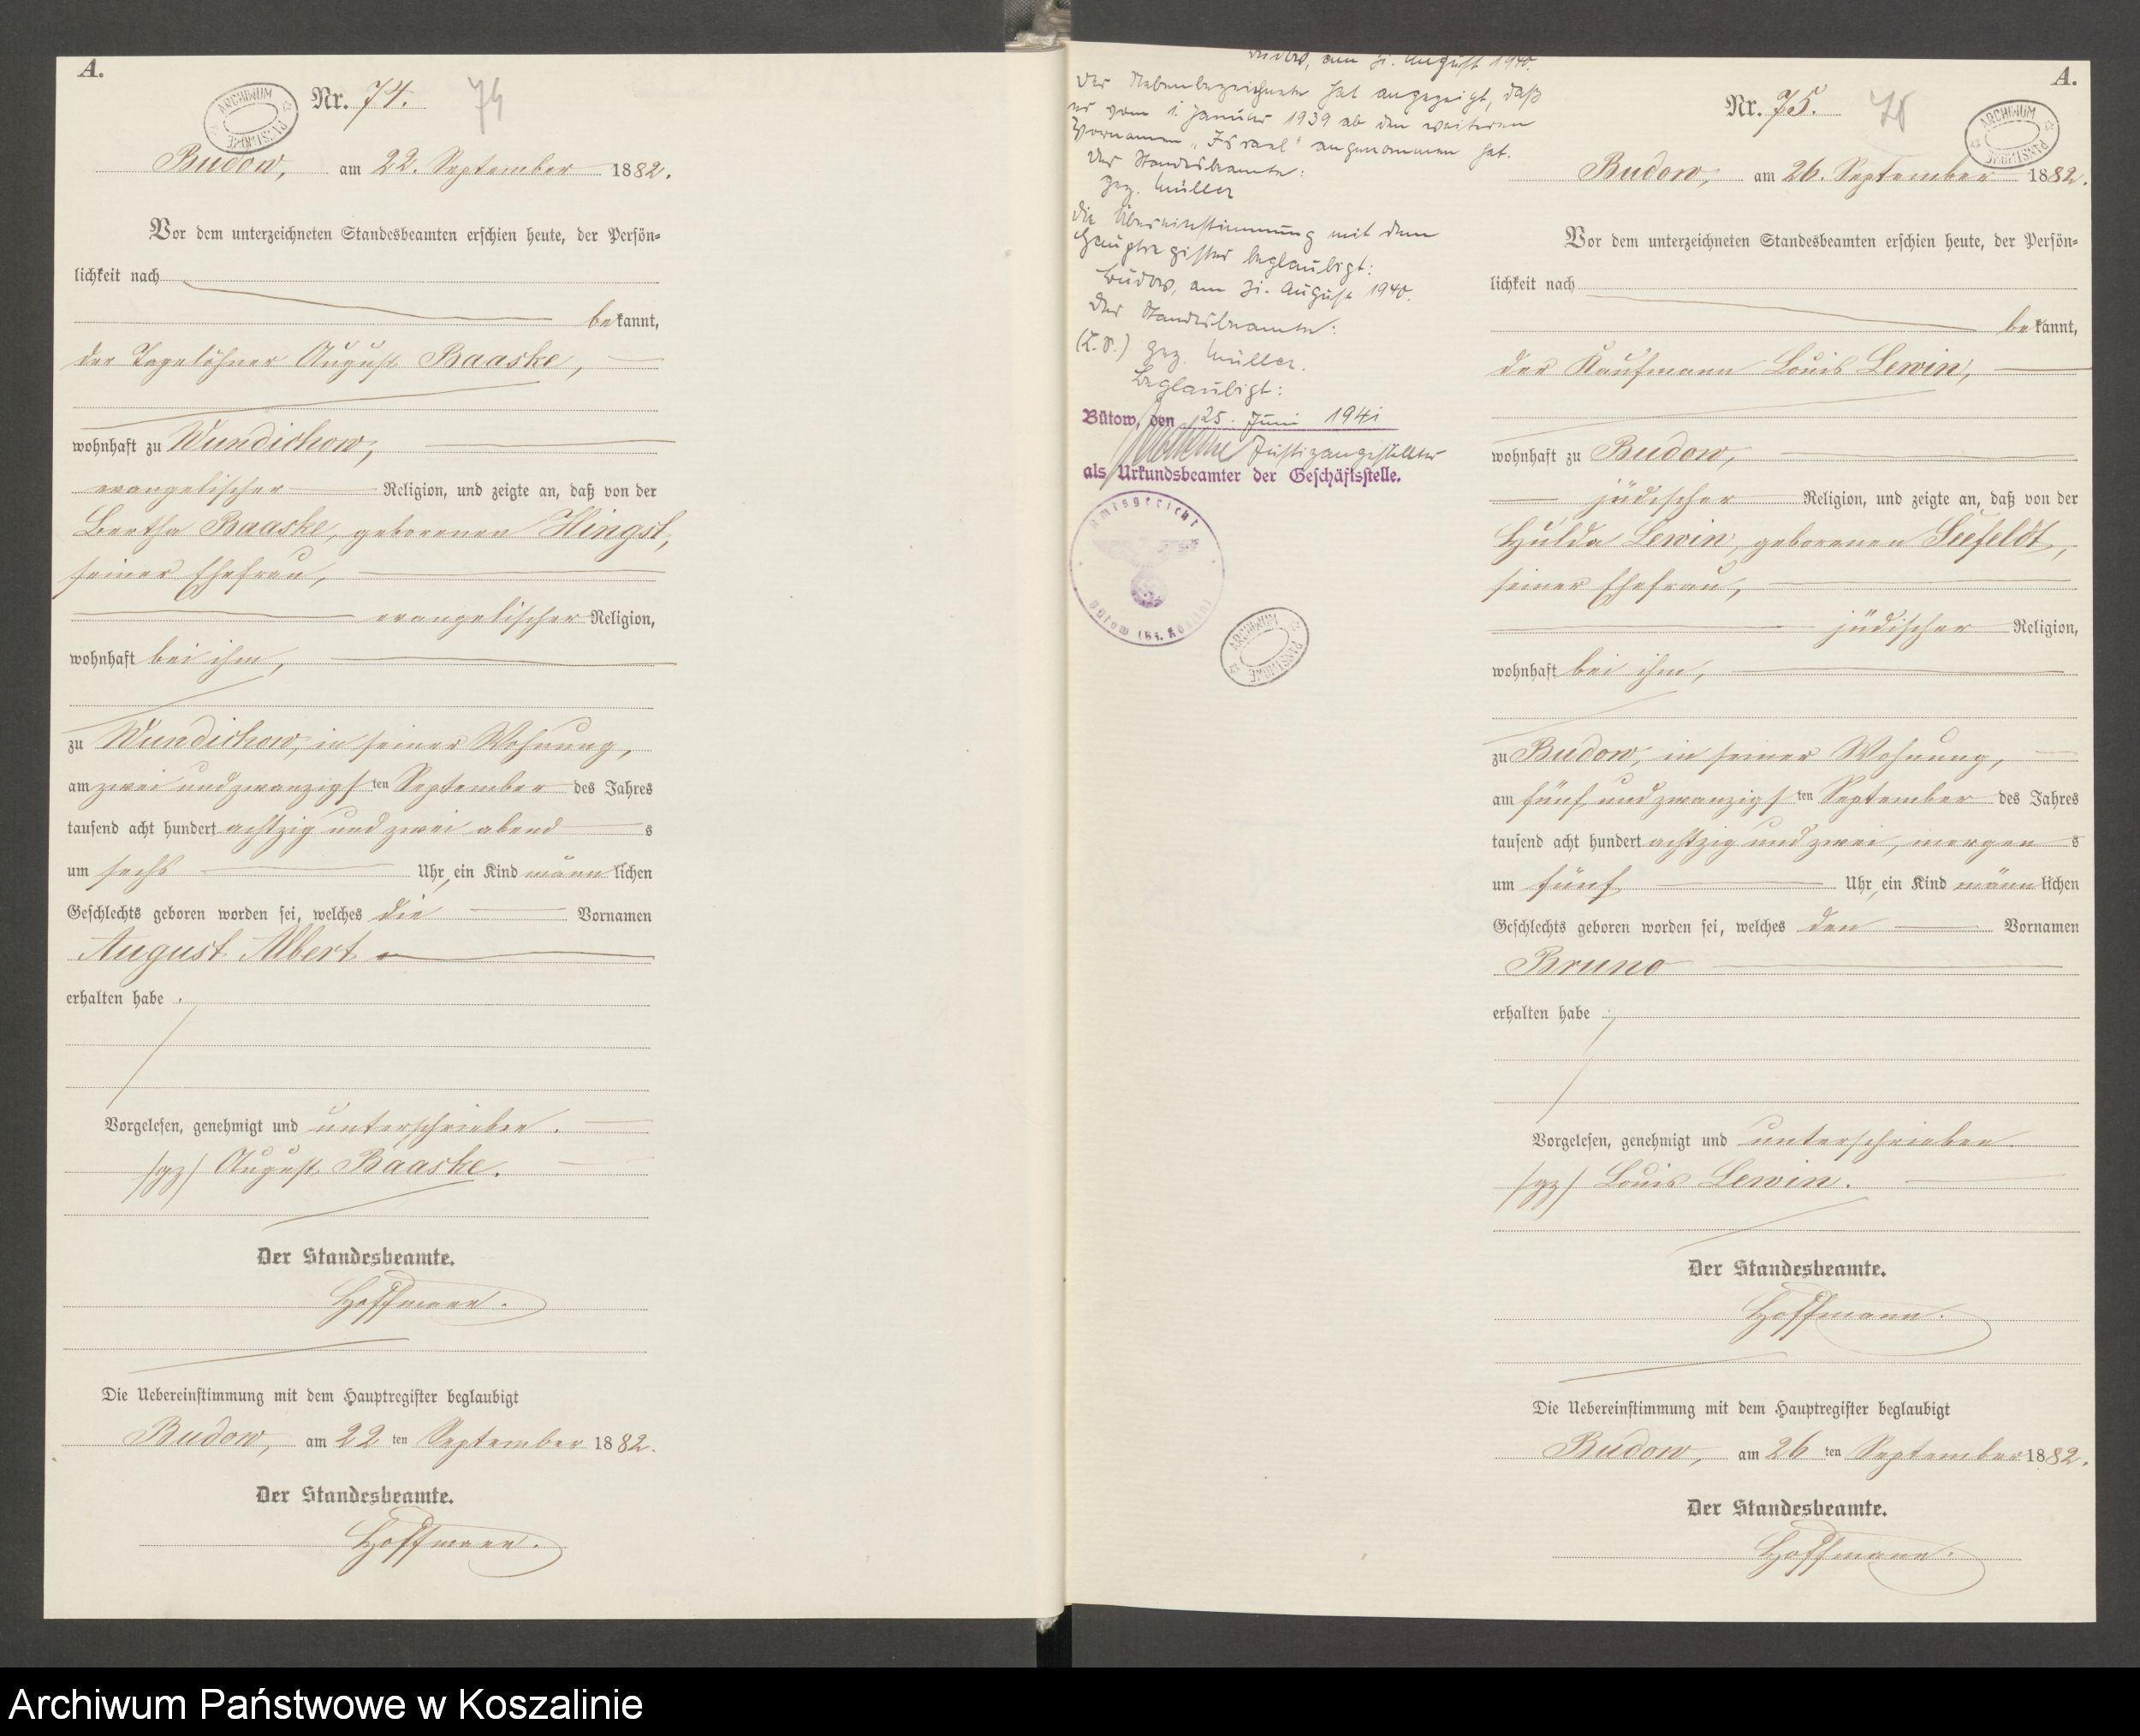 A.
ARCHIWUM PAŃSTWOWE
Nr. 74. 74
Budow, am 22. September 1882.
Vor dem unterzeichneten Standesbeamten erschien heute, der Persön=
lichkeit nach
bekannt,
der Tagelöhner August Baaske,
wohnhaft zu Wundichow,
evangelischer Religion, und zeigte an, daß von der
Bertha Baaske, geborenen Hingst,
seiner Ehefrau,
evangelischer Religion,
wohnhaft bei ihm,
zu Wundichow, in seiner Wohnung,
am zwei und zwanzigsten September des Jahres
tausend acht hundert achtzig und zwei abends
um sechs Uhr, ein Kind männlichen
Geschlechts geboren worden sei, welches die Vornamen
August Albert
erhalten habe.
Vorgelesen, genehmigt und unterschrieben.
/gz/ August Baaske.
Der Standesbeamte.
Hoffmann.
Die Uebereinstimmung mit dem Hauptregister beglaubigt
Budow, am 22ten September 1882.
Der Standesbeamte.
Hoffmann.
Budow, am 31. August 1940.
Der Nebenbezeichnete hat angezeigt, daß
er vom 1. Januar 1939 ab den weiteren
Vornamen „Israel“ angenommen hat.
Der Standesbeamte:
gez. Müller
Die Übereinstimmung mit dem
Hauptregister beglaubigt:
Budow, am 31. August 1940.
Der Standesbeamte:
(L.S.) gez. Müller.
Beglaubigt:
Bütow, den 25. Juni 1941
Justizangestellter
als Urkundsbeamter der Geschäftsstelle.
Amtsgericht
Bütow (Bz. Köslin)
ARCHIWUM PAŃSTWOWE
A.
Nr. 75. 75
ARCHIWUM PAŃSTWOWE
Budow, am 26. September 1882.
Vor dem unterzeichneten Standesbeamten erschien heute, der Persön=
lichkeit nach
bekannt,
der Kaufmann Louis Lewin,
wohnhaft zu Budow,
jüdischer Religion, und zeigte an, daß von der
Hulda Lewin, geborenen Seefeldt,
seiner Ehefrau,
jüdischer Religion,
wohnhaft bei ihm,
zu Budow, in seiner Wohnung,
am fünf und zwanzigsten September des Jahres
tausend acht hundert achtzig und zwei, morgens
um fünf Uhr, ein Kind männlichen
Geschlechts geboren worden sei, welches den Vornamen
Bruno
erhalten habe.
Vorgelesen, genehmigt und unterschrieben
/gz/ Louis Lewin.
Der Standesbeamte.
Hoffmann.
Die Uebereinstimmung mit dem Hauptregister beglaubigt
Budow, am 26ten September 1882.
Der Standesbeamte.
Hoffmann.
Archiwum Państwowe w Koszalinie